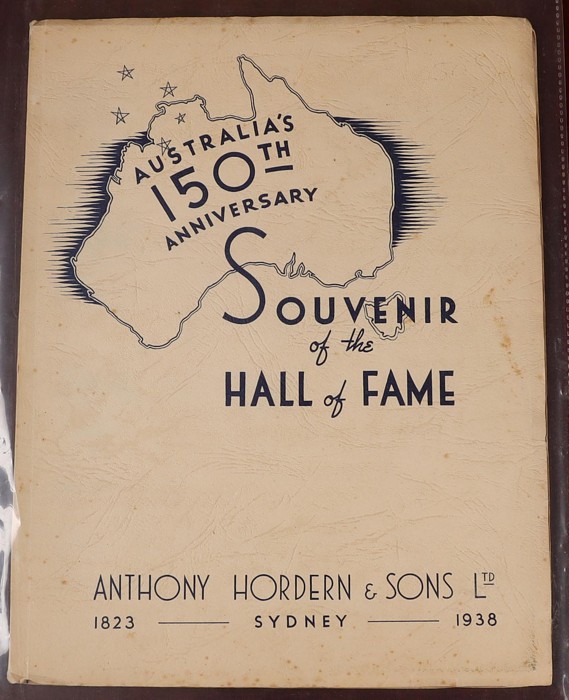 AUSTRALIA'S
150TH
ANNIVERSARY
SOUVENIR
of the
HALL of FAME
ANTHONY HORDERN & SONS LTD
1823 — SYDNEY — 1938